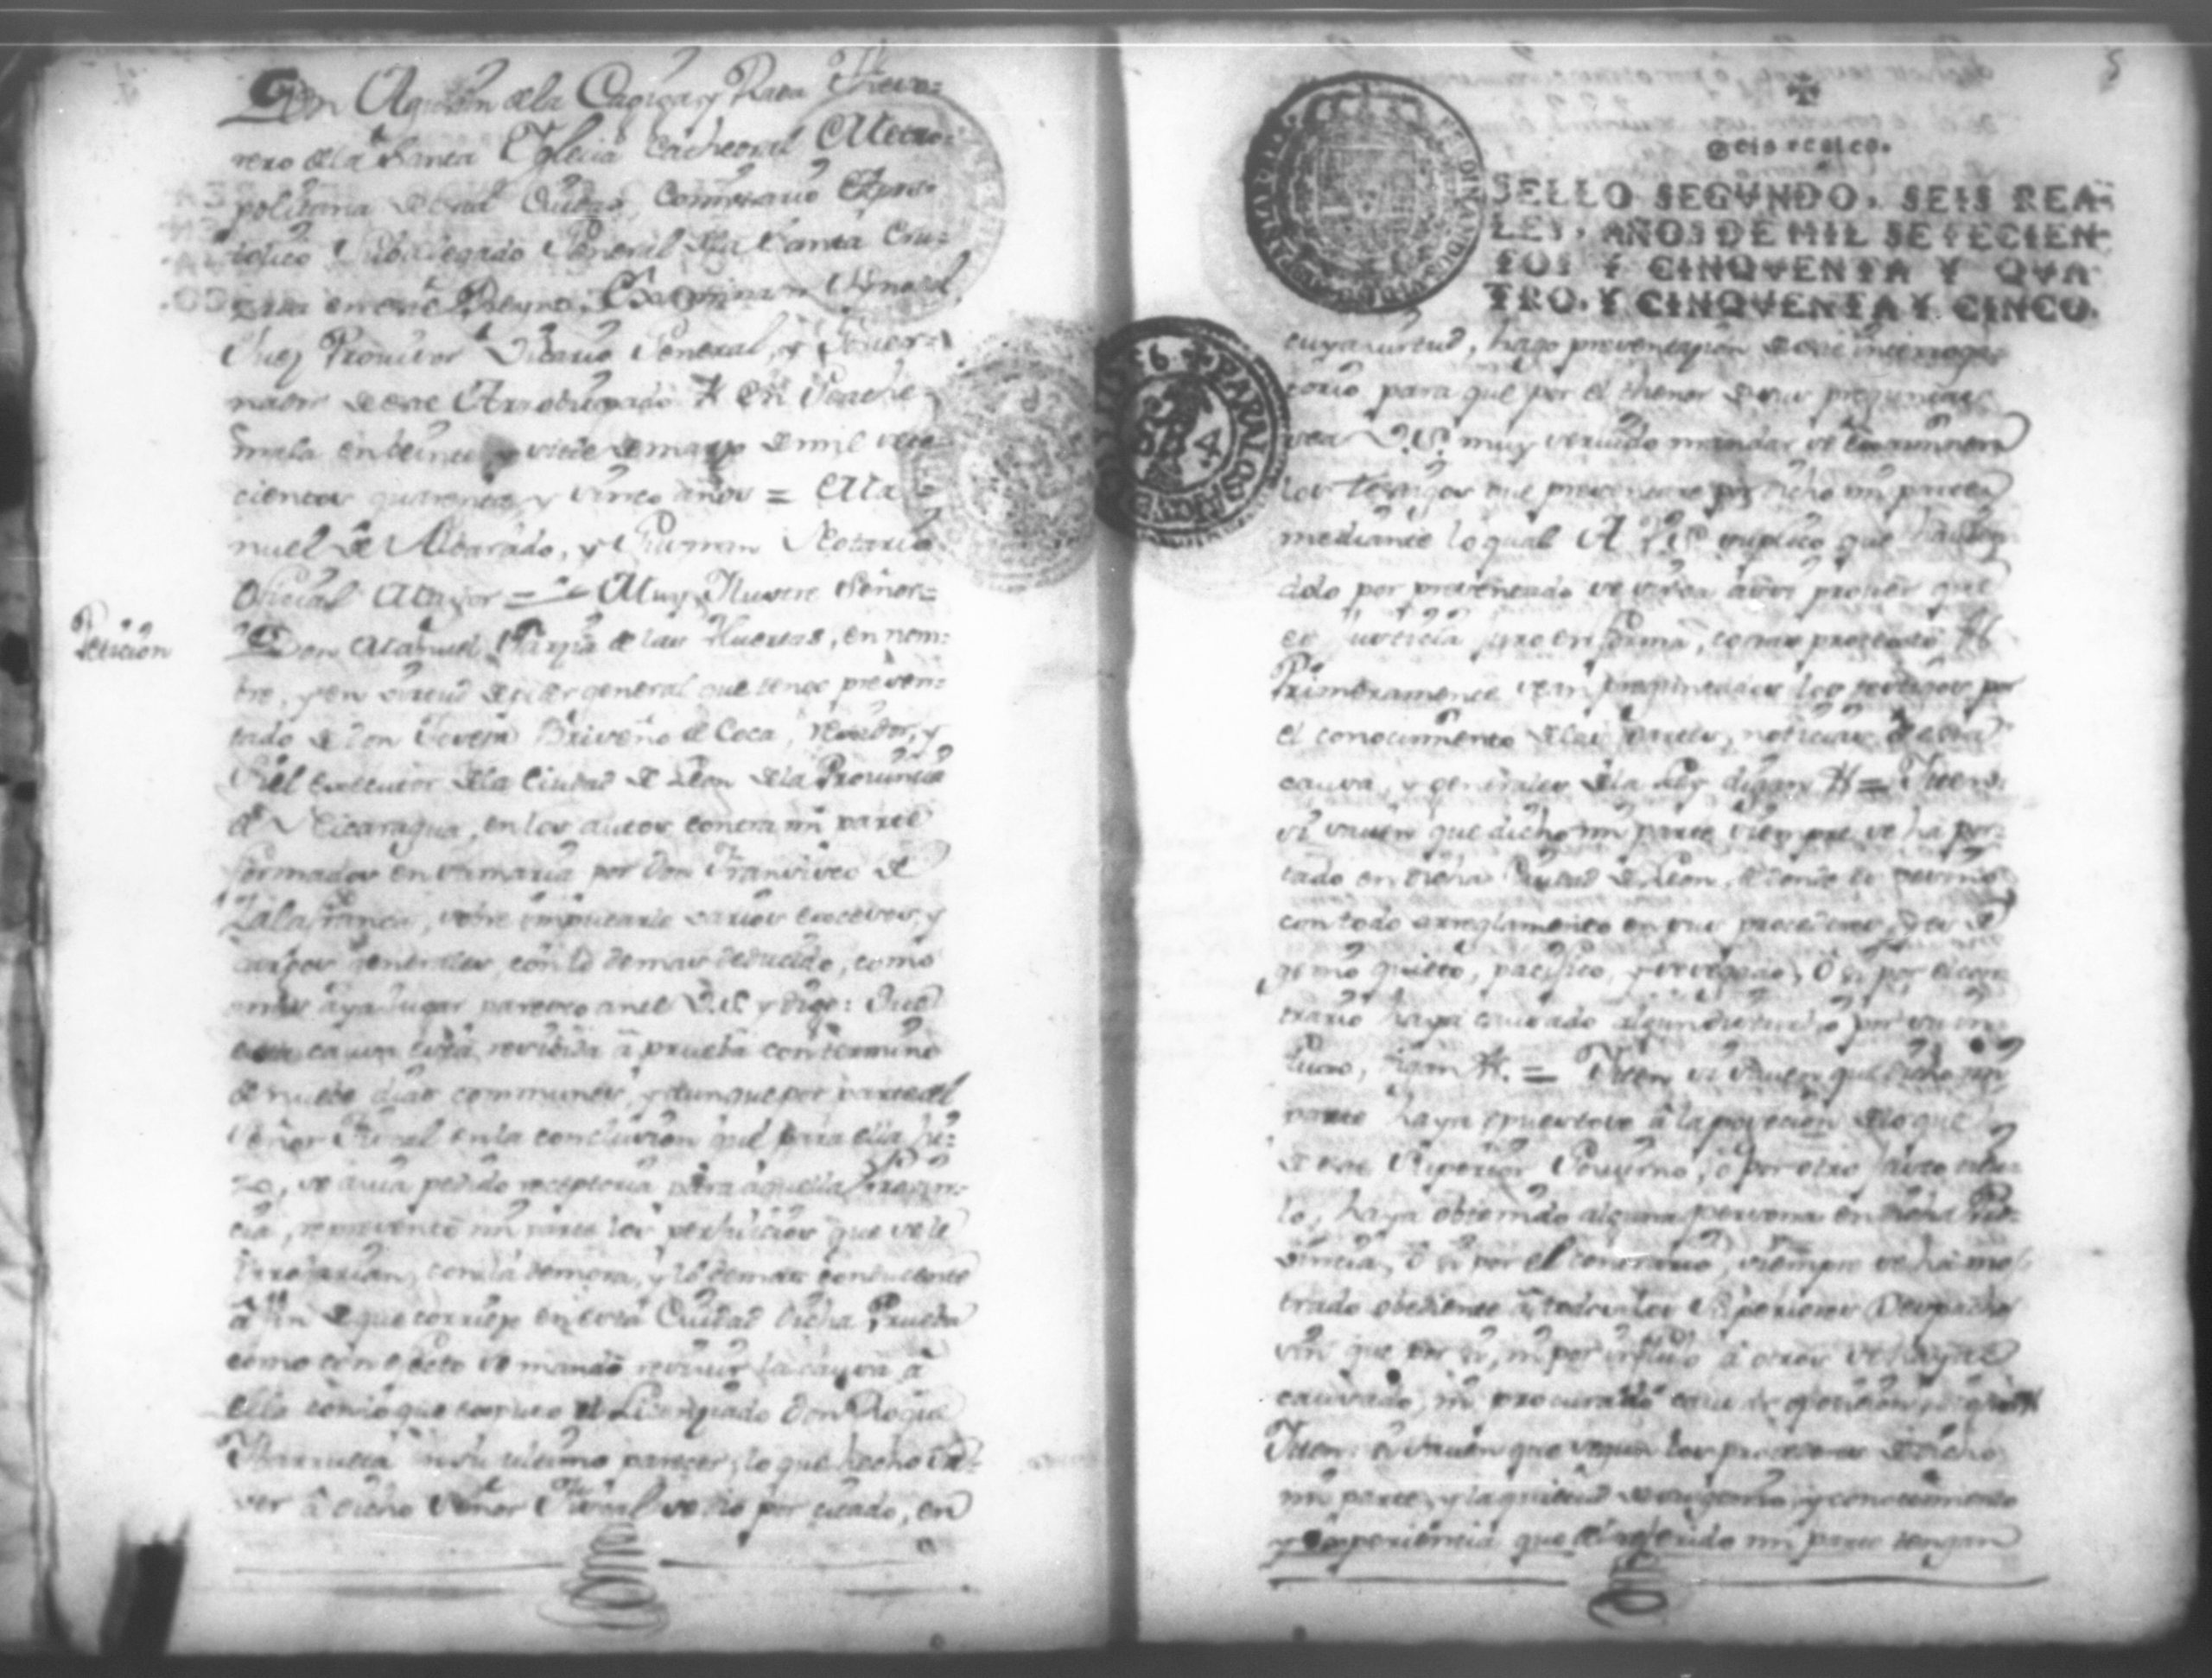 Don Agustin de la Cagiga y Rada Theso=
rero de la Santa Yglecia Cathedral Metro=
politana de esta Ciudad, Comisario Apos=
tolico Subdelegado General de la Santa Cru=
zada en este Reyno, Examinador Synodal,
Juez Provisor Vicario General, y Gover=
nador de este Arzobispado & en Goathe=
mala en beinte y siete de marzo de mil sete=
cientos quarenta y sinco años = Ma=
nuel de Albarado, y Guzman Notario
Oficial Mayor = Muy Ilustre Señor=
Peticion
Don Manuel Garzia de las Huertas, en nom=
bre, y en virtud de poder general que tengo presen=
tado de Don Briseño de Coca, Regidor, y
Fiel executor de la Ciudad de Leon de la Provincia
de Nicaragua, en los autos contra mi parte
formados en sumaria por Don Francisco de
sobre imputarle varios excesos, y
cargos generales, con lo demas deducido, como
mas aya lugar paresco ante V.S. y digo: Que
esta causa está resibida â prueba con termino
de nuebe dias communes, y aunque por parte del
Señor Fiscal en la conclusion que para ella hi=
zo, se avia pedido receptoria para aquella Provin=
cia, representó mi parte los perjuicios que se le
con la demora, y lo demas conducente
â fin de que corriese en esta Ciudad dicha Prueba
como con efecto se mandó resivir la causa â
ella con lo que expuso el Licenziado Don Roque
en su ultimo parecer, lo que hecho sa=
ver â dicho Señor Fiscal se dio por citado, en
5
Seis reales.
SELLO SEGVNDO, SEIS REA-
LES, AÑOS DE MIL SETECIEN-
TOS Y CINQVENTA Y QVA
TRO, Y CINQVENTA Y CINCO.
cuya virtud, hago presentazion de este interroga=
torio para que por el thenor de sus preguntas
sea V.S. muy servido mandar se examinen
los testigos que presentare por dicho mi parte
mediante lo qual A V.S. suplico que havien=
dolo por presentado se sirva assi proveer que
es justicia juro en forma, costas protesto &
Primeramente sean preguntados los testigos por
el conocimiento de las partes, noticias de esta
causa, y generales de la Ley digan & = Yten
si saven que dicho mi parte siempre se ha por=
tado en dicha Ciudad de Leon, de donde es vecino
con todo arreglamento en sus procederes, y es de
genio quieto, pacifico, y sosegado, ô si por el con=
trario haya causado algun disturbio por su in=
fluxo, digan &. = Yten si saven que dicho mi
parte haya opuestose â la posecion de lo que
de este Superior Govierno, o por otro justo titu=
lo, haya obtenido alguna persona en dicha Pro=
vincia, ô si por el contrario, siempre se há mos=
trado obediente â todos los Superiores Despachos
sin que por si, ni por influxo â otros se haya
causado, ni procurado causar oposicion
Yten si saven que segun los procederes de dicho
mi parte, y la quietud de su genio, y conocimiento
y experiencia que del referido mi parte tengan